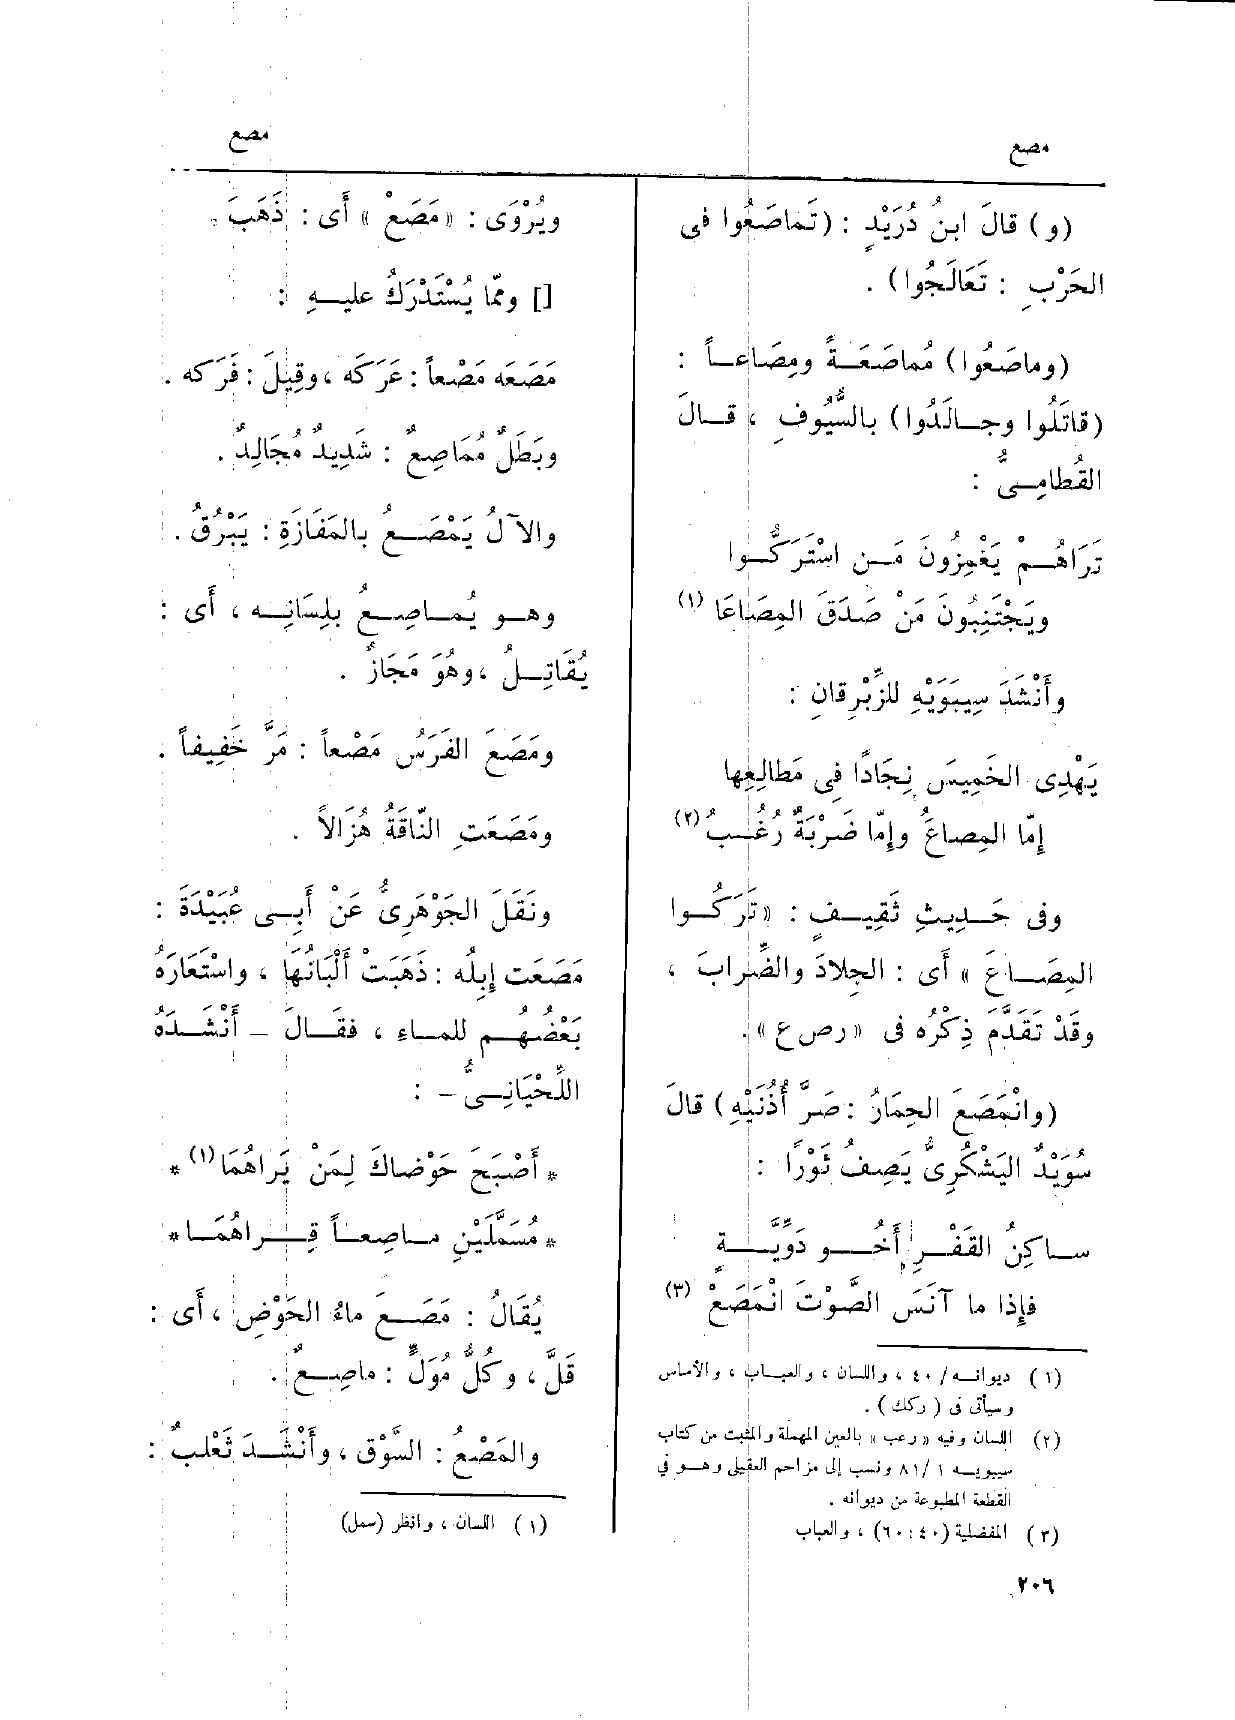 مصع
مصع
(و) قالَ ابنُ دُرَيْدٍ : (تَماصَعُوا فى
الحَرْبِ : تَعَالَجُوا) .
(وماصَعُوا) مُماصَعَةً ومِصَاعاً :
(قاتَلُوا وجالَدُوا) بالسُّيُوفِ ، قالَ
القُطامِىُّ :
تَرَاهُمْ يَغْمِزُونَ مَن اسْتَرَكُّوا
ويَجْتَنِبُونَ مَنْ صَدَقَ المِصَاعَا (١)
وأَنْشَدَ سِيبَوَيْهِ للزِّبْرِقانِ :
يَهْدِى الخَمِيسَ نِجَادًا فِى مَطالِعِها
إِمّا المِصاعَُ وإِمّا ضَرْبَةٌ رُغُبُ (٢)
وفى حَدِيثِ ثَقِيفٍ : «تَرَكُوا
المِصَاعَ » أَى : الجِلادَ والضِّرابَ ،
وقَدْ تَقَدَّمَ ذِكْرُه فى «رصع» .
(وانْمَصَعَ الحِمَارُ : صَرَّ أُذُنَيْهِ) قالَ
سُوَيْدٌ اليَشْكُرِىُّ يَصِفُ ثَوْرًا :
ساكِنُ القَفْرِ أَخُو دَوِّيَّةٍ
فإِذا ما آنَسَ الصَّوْتَ انْمَصَعْ (٣)
(١) ديوانه/ ٤٠ ، واللسان ، والعباب ، والأساس
وسيأتى فى (ركك) .
(٢) اللسان وفيه «رعب» بالعين المهملة والمثبت من كتاب
سيبويه ١ /٨١ ونسب إلى مزاحم العقيلى وهو فى
القطعة المطبوعة من ديوانه .
(٣) المفضلية (٤٠:٦٠) ، والعباب
٢٠٦
ويُرْوَى : «مَصَعْ» أَى : ذَهَبَ .
[] وممّا يُسْتَدْرَكُ عليهِ :
مَصَعَه مَصْعاً : عَرَكَه ، وقِيلَ : فَرَكه .
وبَطَلٌ مُمَاصِعٌ : شَدِيدٌ مُجَالِدٌ .
والآلُ يَمْصَعُ بالمَفَازَةِ : يَبْرُقُ .
وهو يُماصِعُ بلِسَانِه ، أَى :
يُقَاتِلُ ، وهُوَ مَجَازٌ .
ومَصَعَ الفَرَسُ مَصْعاً : مَرَّ خَفِيفاً .
ومَصَعَتِ النّاقَةُ هُزَالاً .
ونَقَلَ الجَوْهَرِىُّ عَنْ أَبِى عُبَيْدَةَ :
مَصَعَت إِبِلُه : ذَهَبَتْ أَلْبَانُهَا ، واسْتَعَارَهُ
بَعْضُهُم للماءِ ، فقالَ – أَنْشَدَهُ
اللِّحْيَانِىُّ – :
* أَصْبَحَ حَوْضاكَ لِمَنْ يَراهُمَا(١) *
* مُسَمَّلَيْنِ ماصِعاً قِراهُمَا *
يُقَالُ : مَصَعَ ماءُ الحَوْضِ ، أَى :
قَلَّ ، وكُلُّ مُوَلٍّ : ماصِعٌ .
والمَصْعُ : السَّوْق ، وأَنْشَدَ ثَعْلبٌ :
(١) اللسان ، وانظر (سمل)